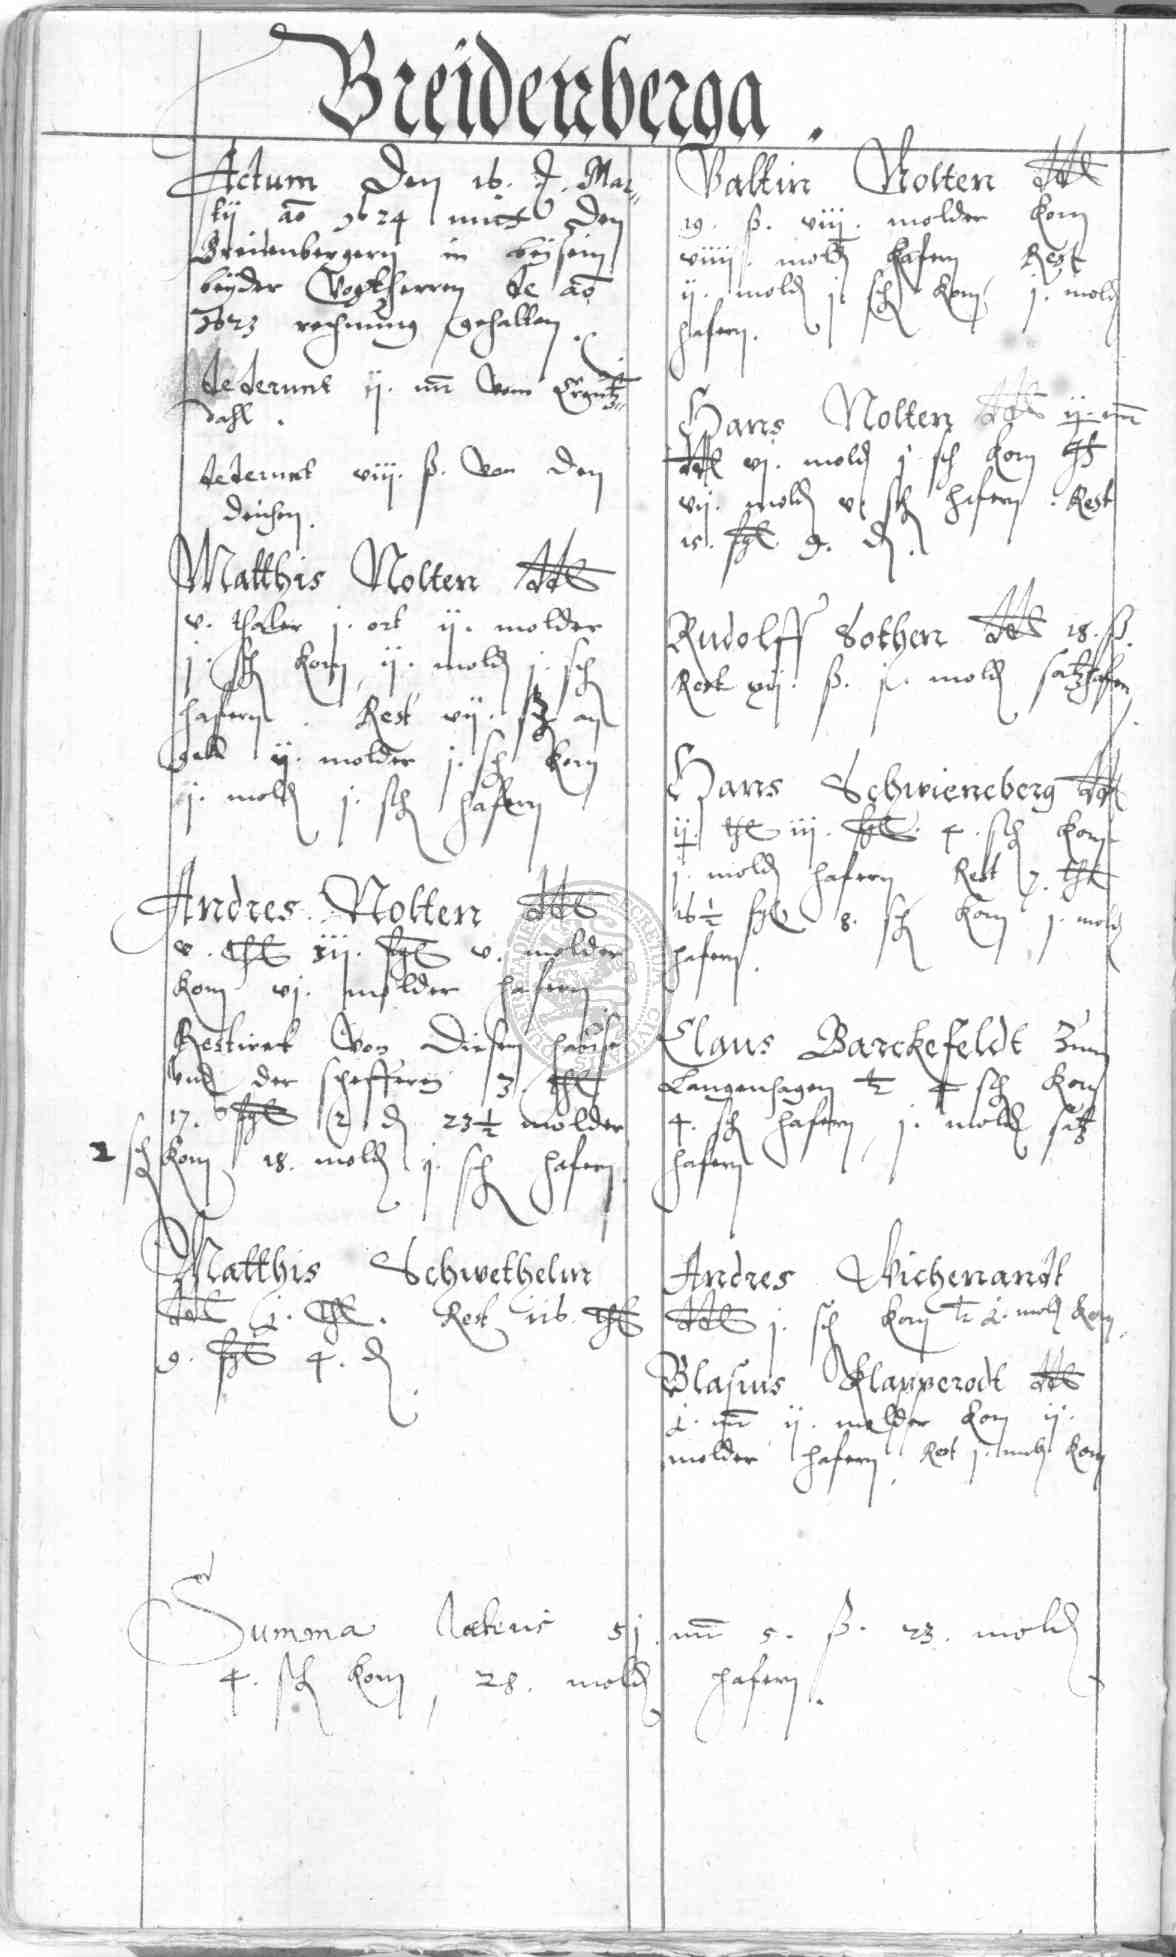 Breidenberga.
Actum den 16. Mar=
tij ao 1624 mitt den
Breidenbergern in beysein
beyder Vogtherren de ao
1623 rechnung gehalten.
dederunt ij. mr vom
dahl.
dederunt viij. ß. von den
Matthis Nolten ddt
v. thaler j. ort ij. molder
j. sch korn ij. mold j. sch
hafern. Rest vij. an
geld ij. molder j. sch korn
ij. mold j. sch hafern
Andres Nolten ddt
v. thl iij. fgl v. molder
korn vj. molder hafern
Restiret von diesem hause
und der schefferey 3. thl
17. fgl 2 d 23½ molder
2 sch korn 18. mold j. sch hafern
Matthis Schwethelm
ddt j. thl. Rest 116. thl
9. fgl 4. d
Valtin Nolten ddt
19. ß. viij. molder korn
viiij. mold hafern Rest
ij. mold j. sch korn j. mold
hafern.
Hans Nolten ddt ij. mr
ddt vj. mold j. sch korn
vij. mold v. sch hafern. Rest
15. fgl. 9. d.
Rudolff Sothen ddt 18. ß.
Rest ß. j. mold satzhafern
Hans Schwieneberg ddt
ij. thl iij. fgl. 4. sch korn
j. mold hafern Rest 7. thl
16½ fgl 8. sch korn j. mold
hafern.
Claus Barckefeldt zum
Langenhagen 4 sch korn
4. sch hafern, j. mold satz
hafern
Andres Wichenandt
ddt j. sch korn mold korn
Blasius Klapperodt ddt
mr ij. molder korn ij.
molder hafern, Rest j. mold korn
Summa Lateris 51. mr 5. ß. 23. mold
4. sch korn, 28. mold hafern.